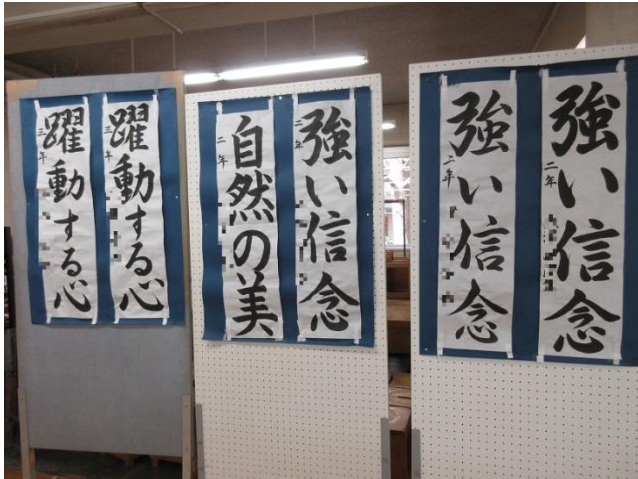 躍動する心
三年
躍動する心
三年
自然の美
二年
強い信念
二年
強い信念
二年
強い信念
二年